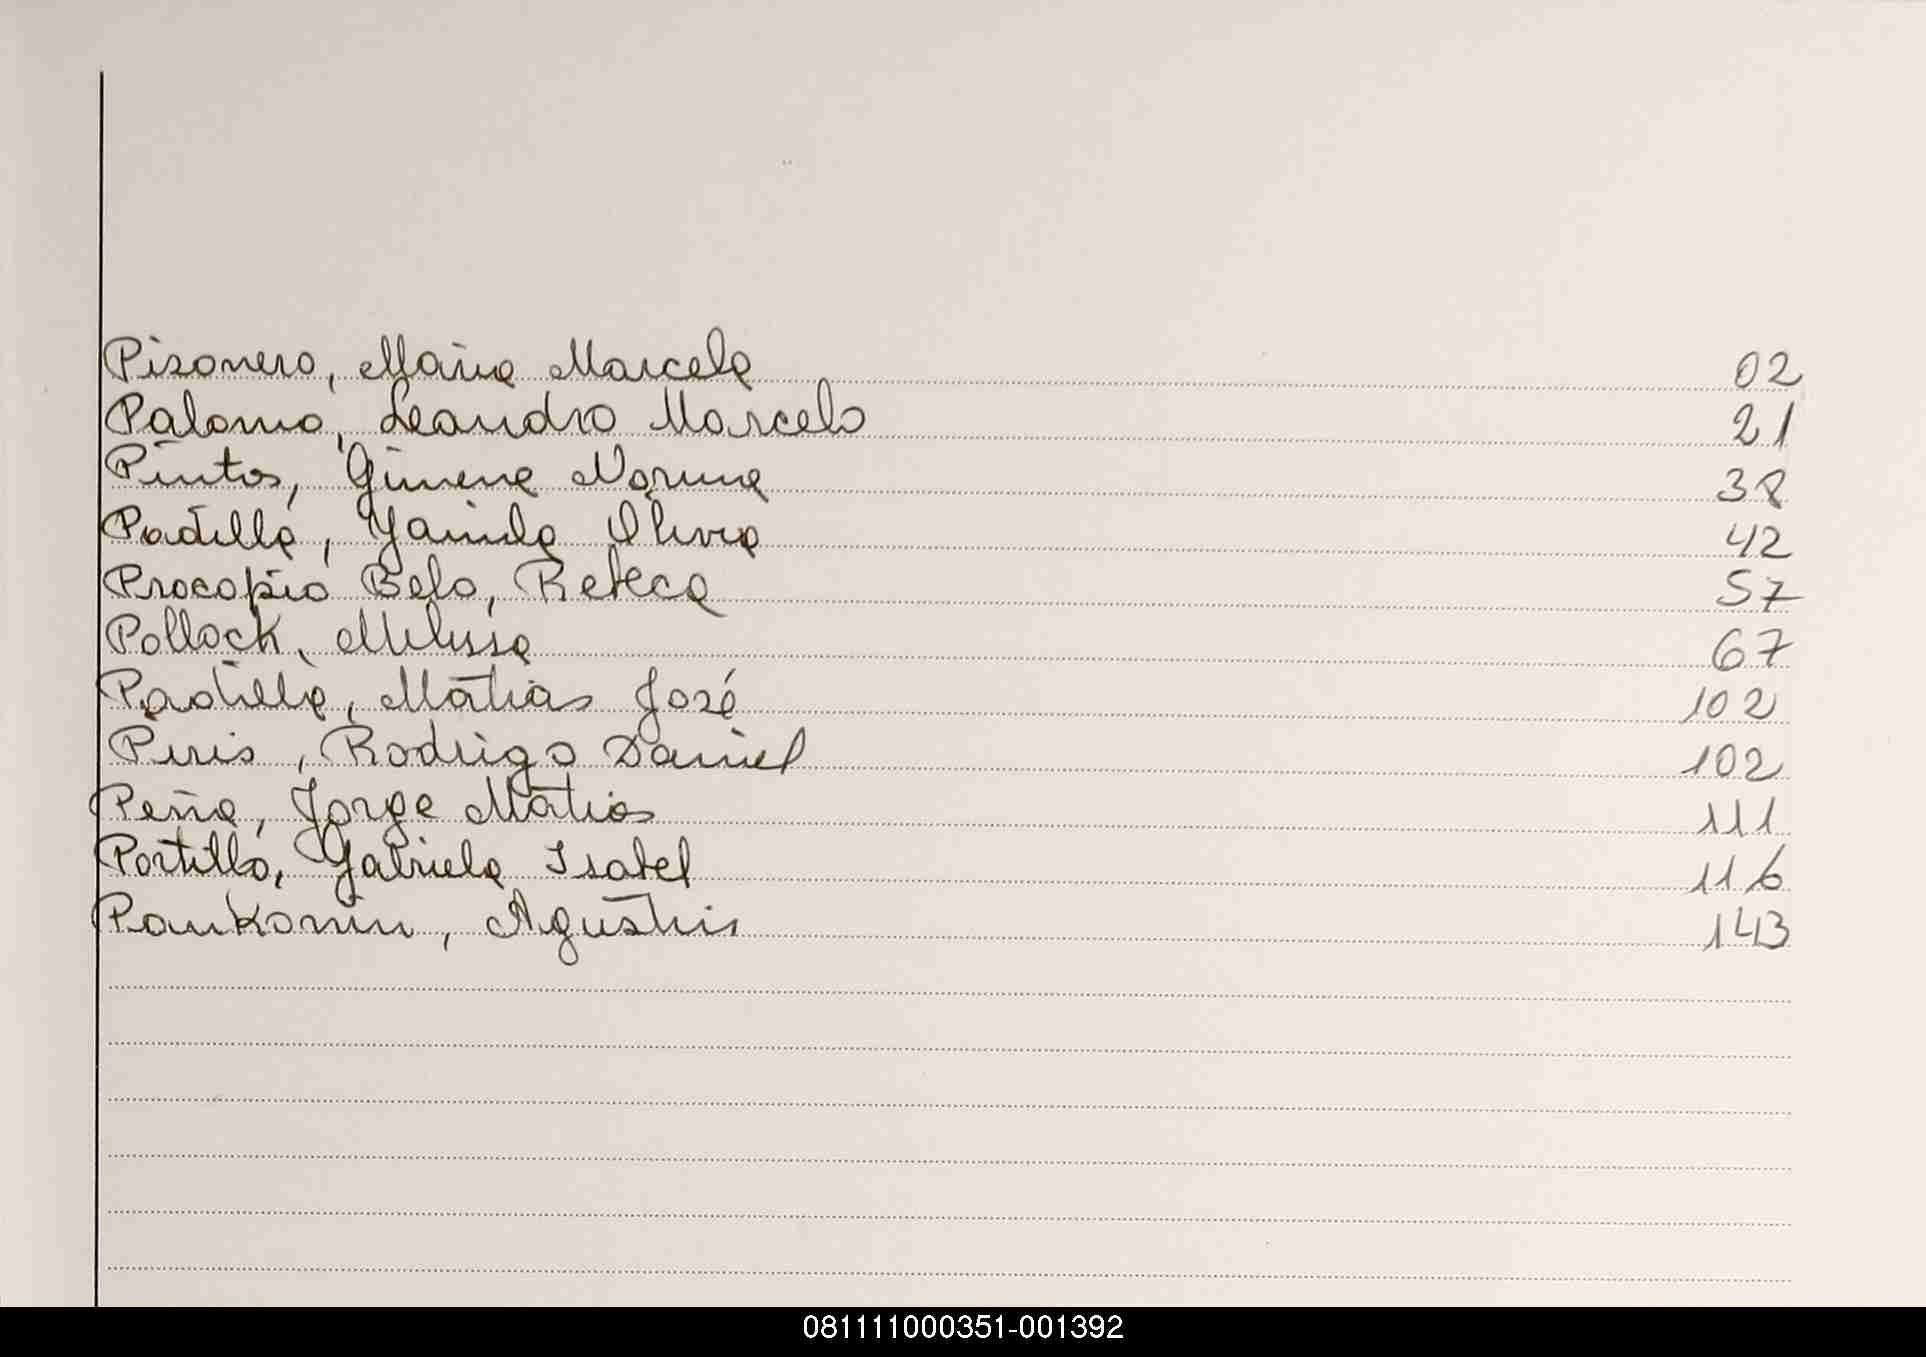 Pisonero, María Marcela 02
Palomo, Leandro Marcelo 21
Pintos, Gimena Norma 38
Padilla, Yamila Olivia 42
Procopio Belo, Rebeca 57
Pollock, Melissa 67
Padilla, Matías José 102
Piris, Rodrigo Daniel 102
Peña, Jorge Matías 111
Portillo, Gabriela Isabel 116
Agustín 143
081111000351-001392